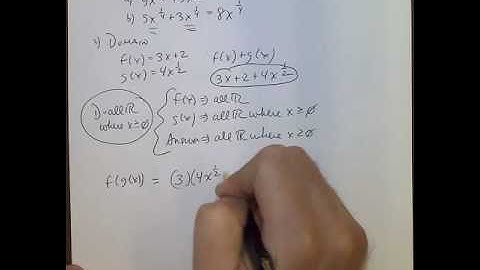 b) 5x^1/4 + 3x^1/4 = 8x^1/4
) Domain
f(x) = 3x+2 f(x)+g(x)
g(x) = 4x^1/2 3x+2+4x^1/2
D=all ℝ where x≥0
f(x) ⇒ all ℝ
g(x) ⇒ all ℝ where x≥0
Answer ⇒ all ℝ where x≥0
f(g(x)) = (3)(4x^1/2